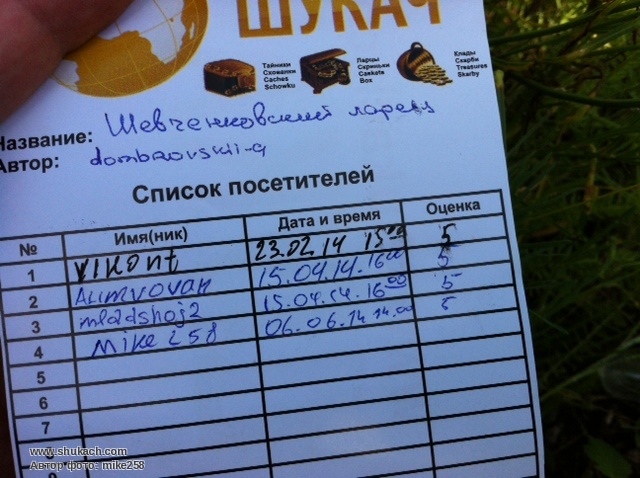 ШУКАЧ
Тайники
Схованки
Caches
Schowku
Ларцы
Скриньки
Caskets
Box
Клады
Скарби
Treasures
Skarby
Название: Шевченковский ларец
Автор: dombrovskii-q
Список посетителей
№ Имя(ник) Дата и время Оценка
1 VIKONT 23.02.14 15⁰⁰ 5
2 15.04.14. 16⁰⁰ 5
3 mladshoj2 15.04.14. 16⁰⁰ 5
4 Mike 258 06.06.14 14.00 5
5
6
7
8
9
www.shukach.com
Автор фото: mike258